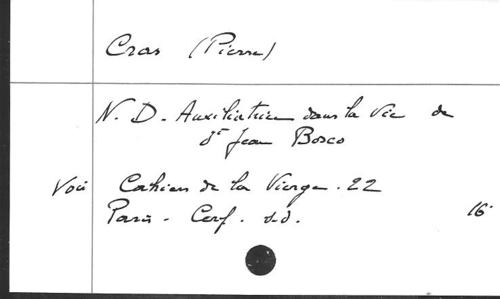 Cras (Pierre)
N. D. Auxiliatrice dans la Vie de
St Jean Bosco
Voir Cahiers de la Vierge. 22
Paris - Cerf. s.d. 16°